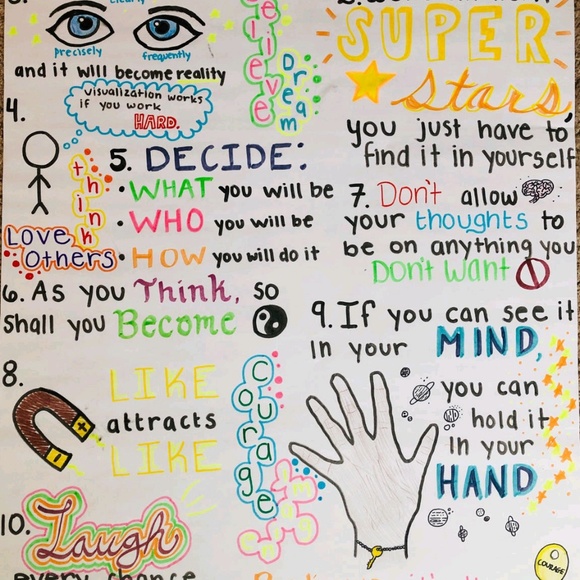 clearly
precisely frequently
and it will become reality
Believe
Dream
SUPER
Stars,
you just have to
find it in yourself
4.
visualization works
if you work
HARD.
think
Love
Others
5. DECIDE:
• WHAT you will be
• WHO you will be
• HOW you will do it
6. As you Think, so
shall you Become
7. Don't allow
your thoughts to
be on anything you
Don't Want
8.
LIKE
attracts
LIKE
Courage
9. If you can see it
in your MIND,
you can
hold it
in your
HAND
COURAGE
10. Laugh
every chance